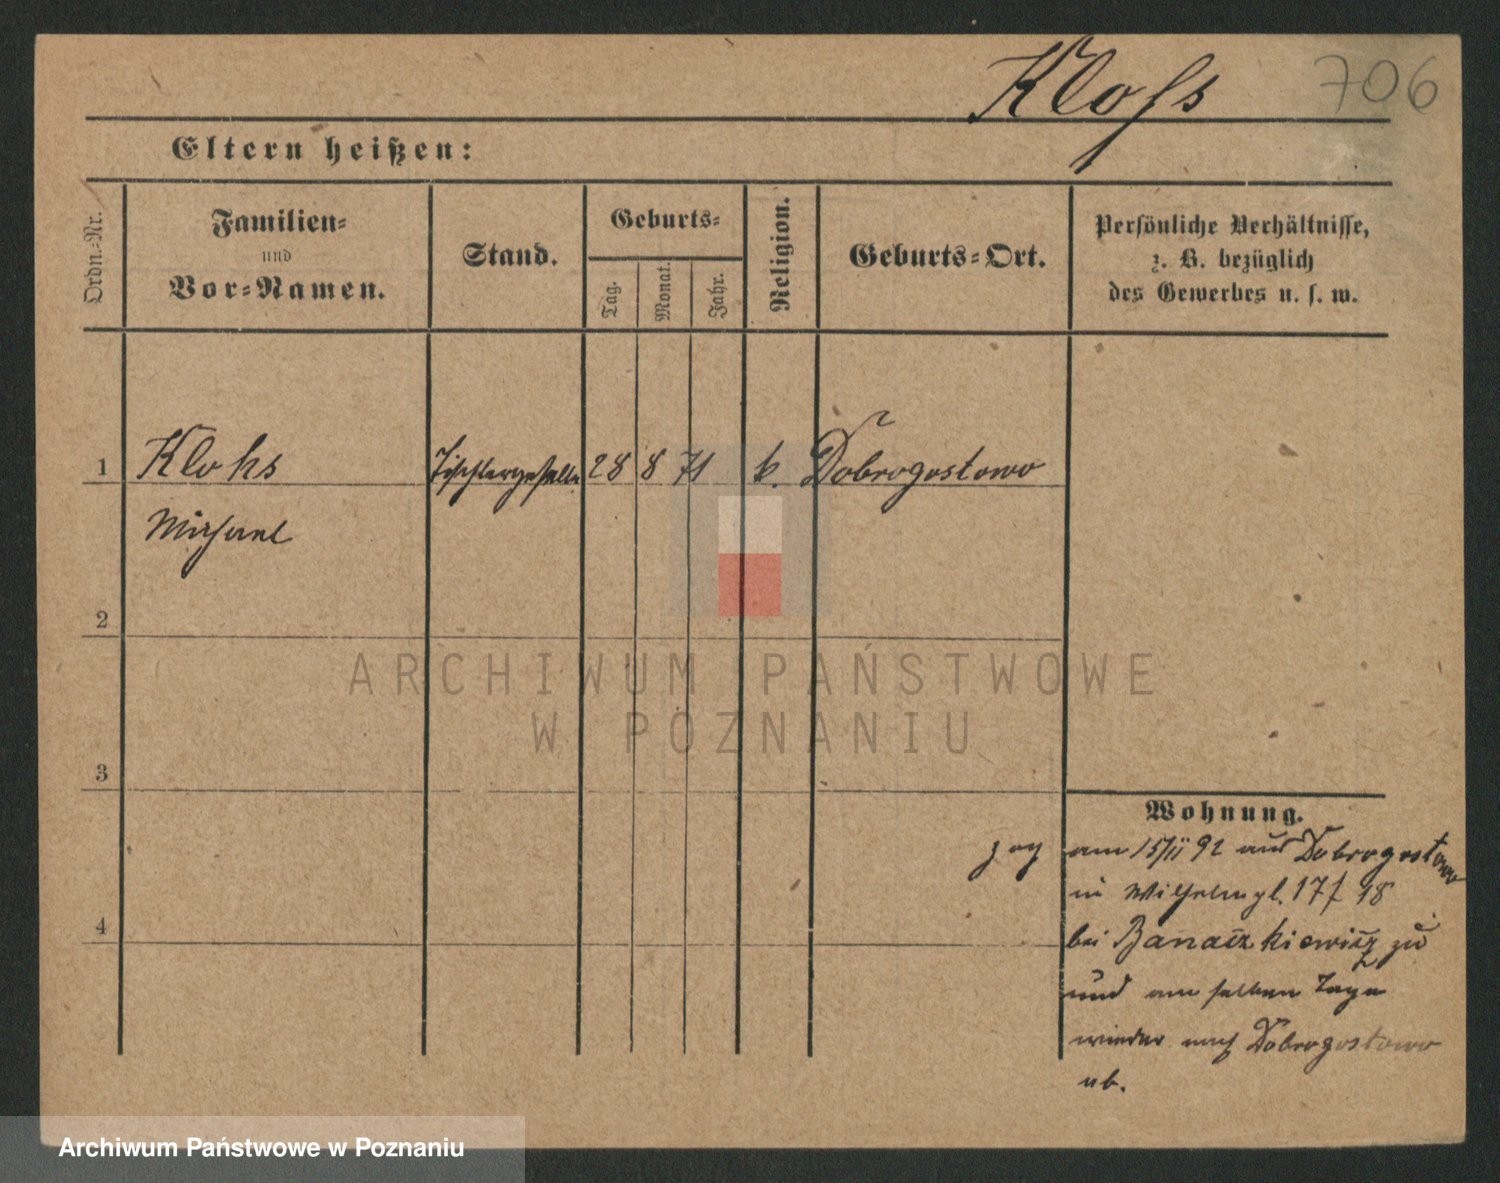 Kloſs 706
Eltern heißen:
Ordn.-Nr.
Familien-
und
Vor-Namen.
Stand.
Geburts-
Tag.
Monat.
Jahr.
Religion.
Geburts-Ort.
Persönliche Verhältnisse,
z. B. bezüglich
des Gewerbes u. s. w.
1 Klohs Tischlergeselle 28 8 71 k. Dobrogostowo
Michael
2
ARCHIWUM PAŃSTWOWE
W POZNANIU
3
Wohnung.
zog am 15/II 92 aus Dobrogostowo
in Wilhelmpl. 17/18
4 bei Banaszkiewicz zu
und am selben Tage
wieder nach Dobrogostowo
ab.
Archiwum Państwowe w Poznaniu